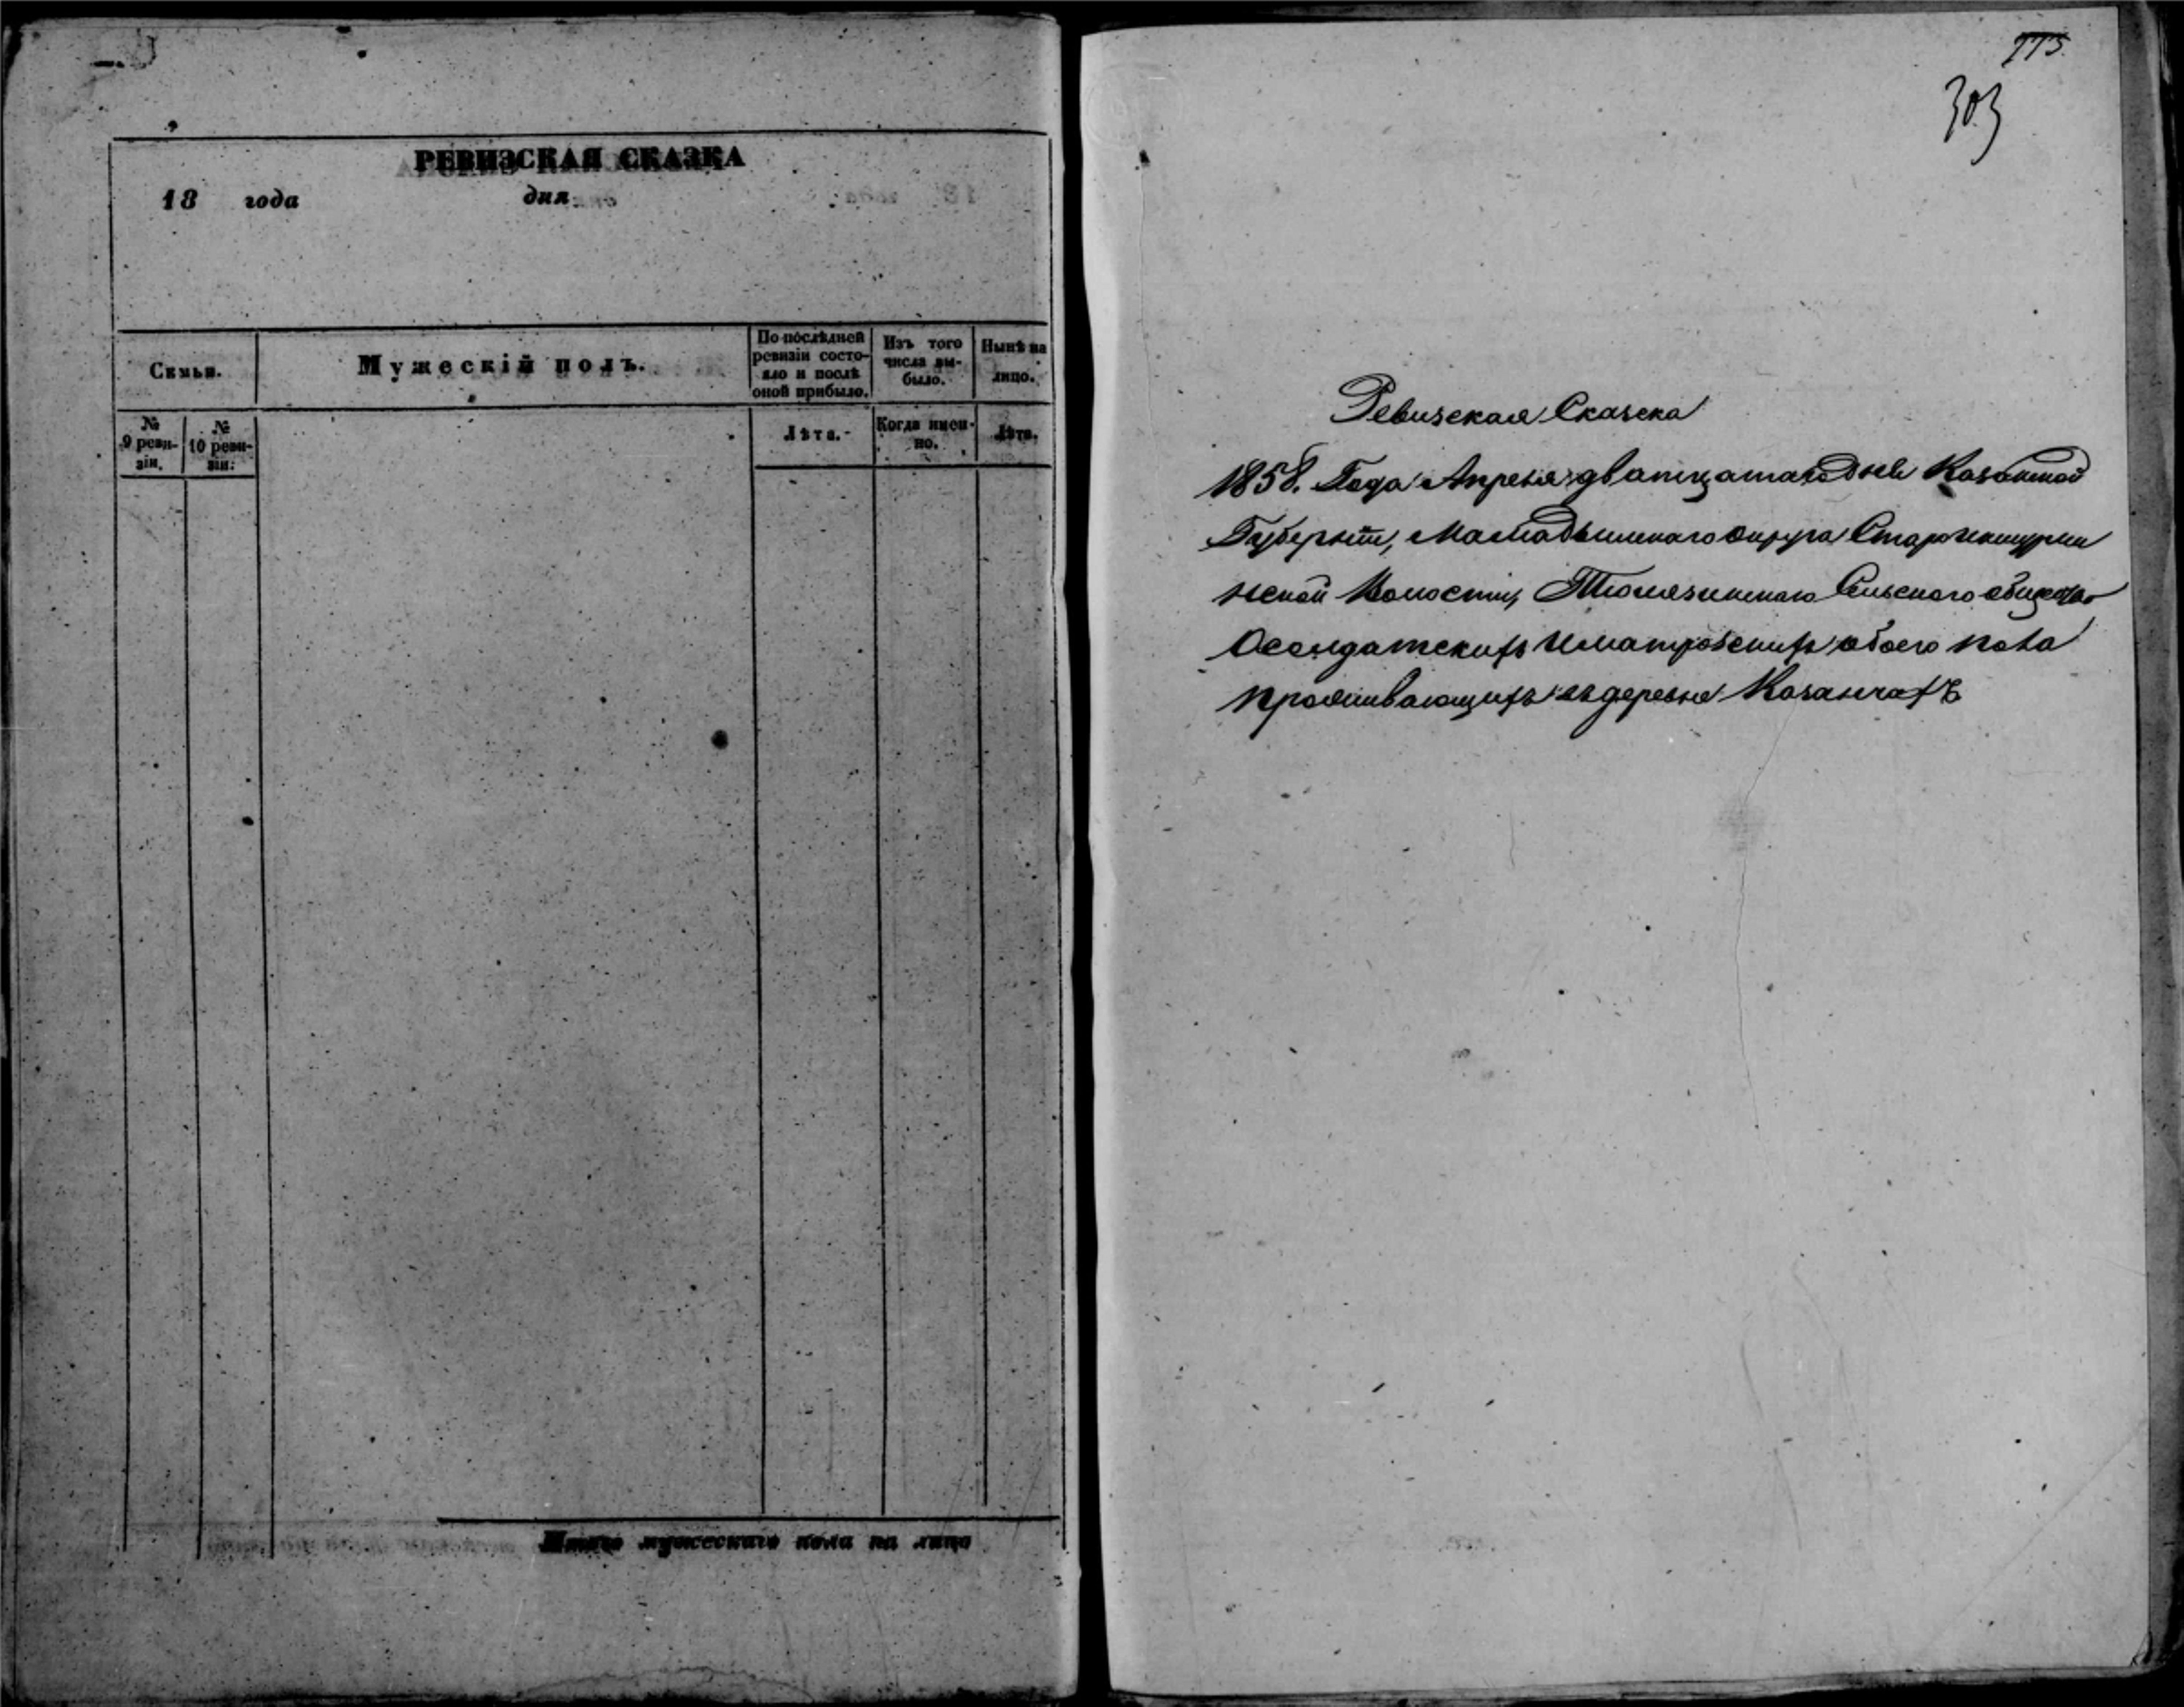 РЕВИЗСКАЯ СКАЗКА
18 года дня
Семьи.
Мужескій полъ.
По послѣдней ревизіи состояло и послѣ оной прибыло.
Изъ того числа выбыло.
Нынѣ на лицо.
№ 9 ревизіи.
№ 10 ревизіи.
Лѣта.
Когда именно.
Лѣта.
Итого мужескаго пола на лицо
775
303
Ревизская Сказска
1858. Года Апреля дватцатаго дня Казанской
Губерніи, Мамадышскаго округа Староикшурми
нской Волости, Тюлязинскаго Сельского общества
О солдатскихъ и матрозскихъ обоего пола
проживающихъ въ деревне Казанчахъ